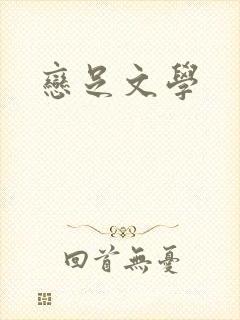 戀足文學
回首無憂